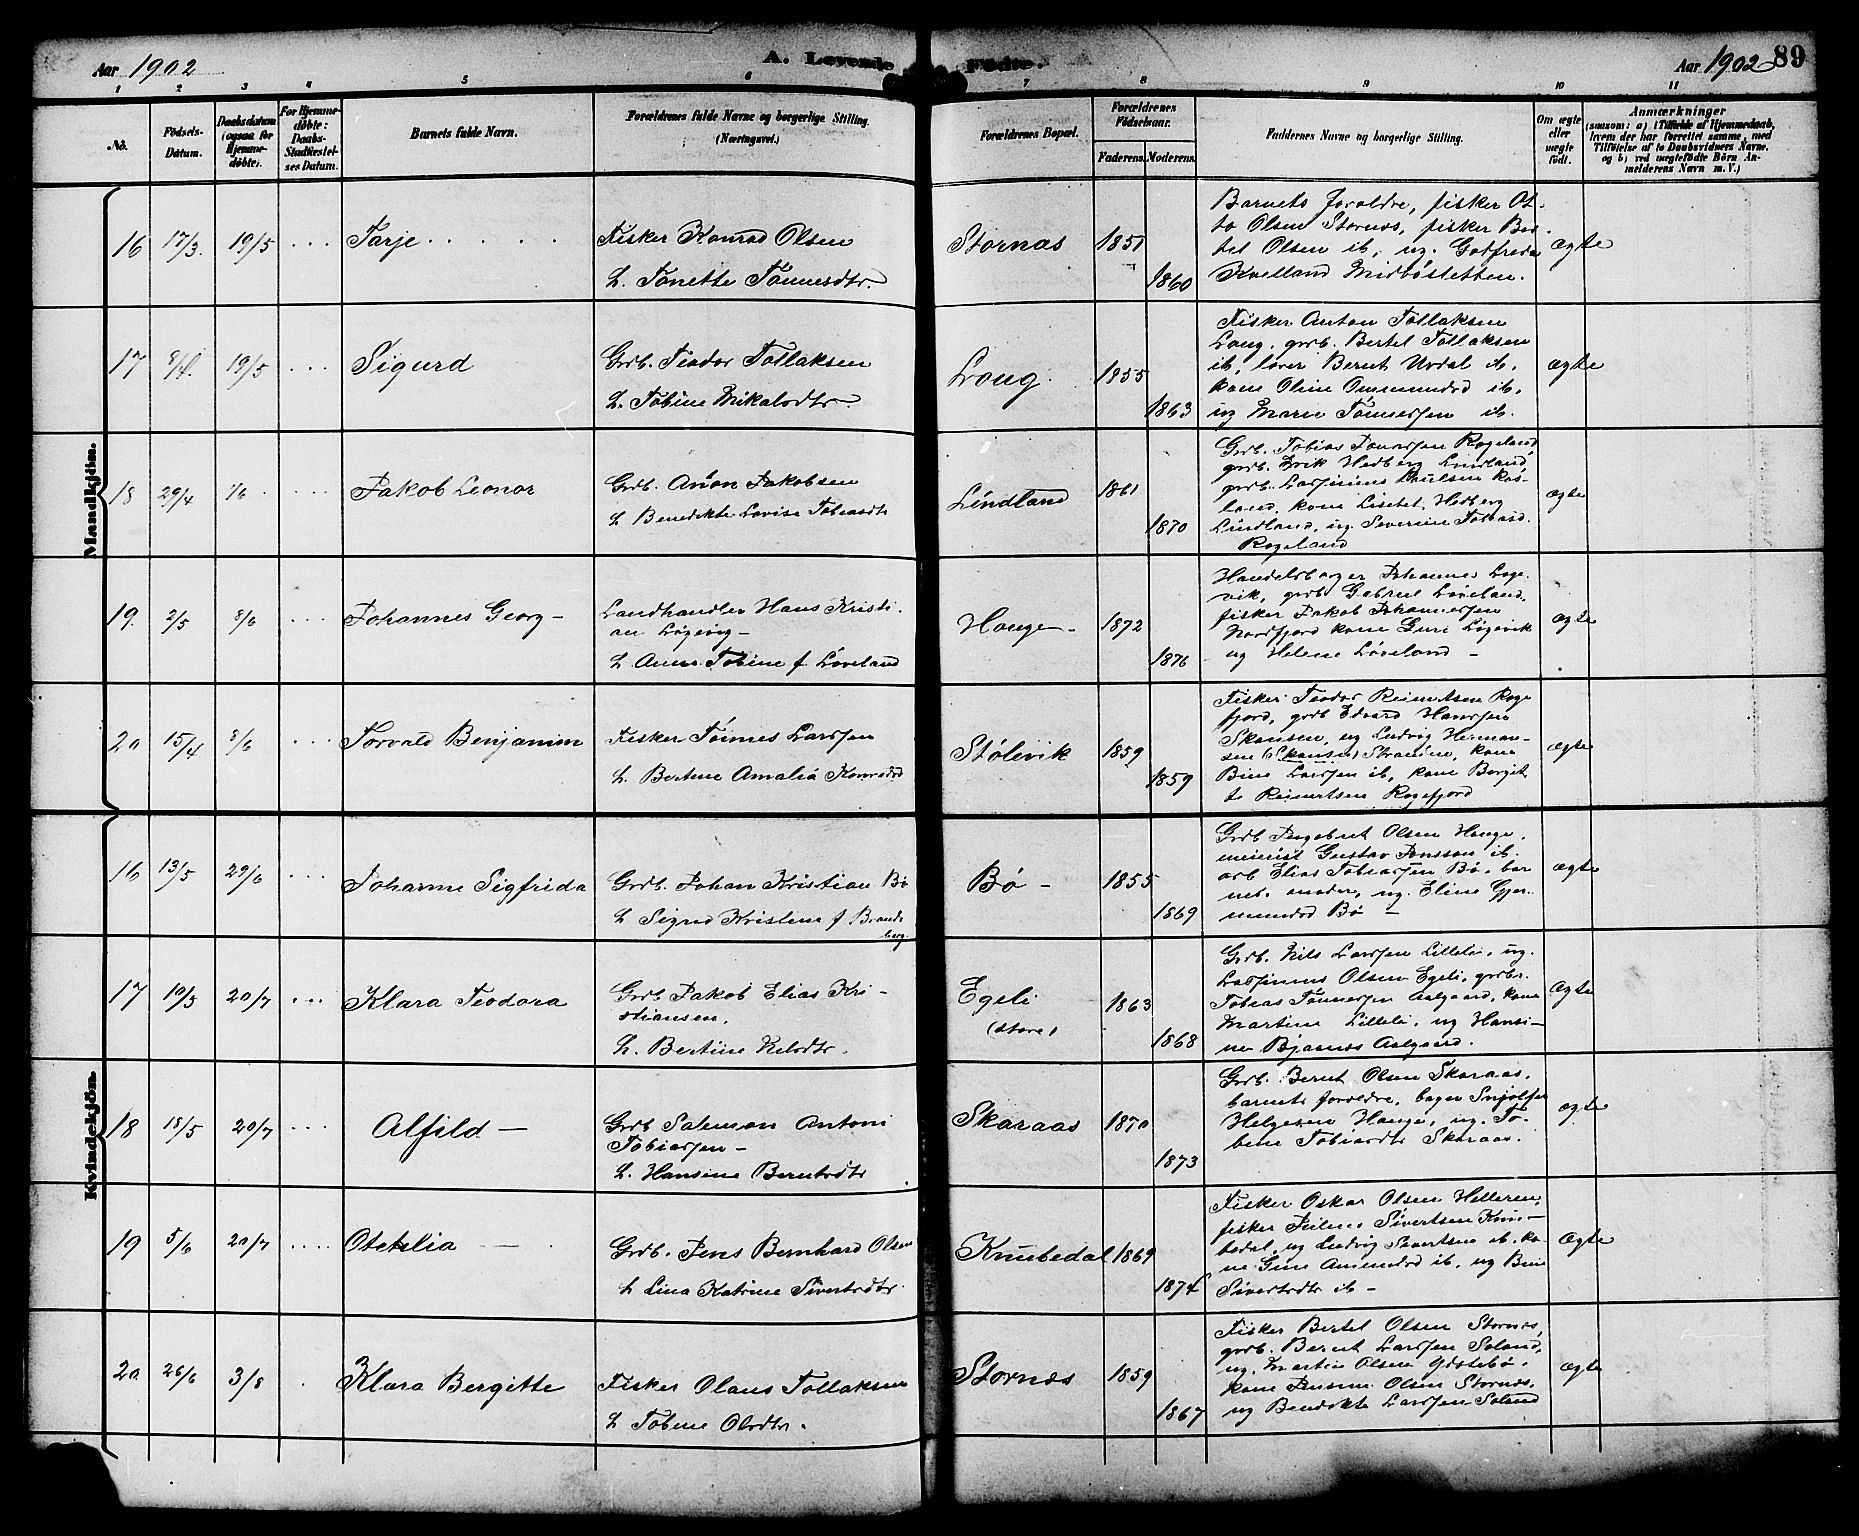 Aar 1902
A. Levende Fødte.
Aar 1902 89
1 2 3 4 5 6 7 8 9 10 11
No.
Födsels-Datum.
Daabsdatum (ogsaa for Hjemme-döbte).
For Hjemme-döbte: Daabs-Stadfæstel-ses Datum.
Barnets fulde Navn.
Forældrenes fulde Navne og borgerlige Stilling. (Næringsvei.)
Forældrenes Bopæl.
Forældrenes Födselsaar.
Faderens. Moderens.
Faddernes Navne og borgerlige Stilling.
Om ægte eller uægte födt.
Anmærkninger
(saasom: a) i Tilfælde af Hjemmedaab,
hvem der har forrettet samme, med
Tilföielse af to Daabsvidners Navne,
og b) ved uægtefödte Börn An-
melderens Navn m. V.)
Mandkjön.
16 17/3. 19/5 Tarje
Fisker Konrad Olsen
h. Tonette Tønnesdtr.
Stornæs 1851 1860
Barnets forældre, fisker Ot-
to Olsen Stornæs, fisker Ber-
tel Olsen ib, ug. Gotfreda
Kvelland Midbøstetten.
ægte
17 8/4. 19/5 Sigurd
Grdb. Teodor Tollaksen
h. Tobine Mikalsdtr.
Loug 1855 1863
Fisker Anton Tollaksen
Loug, grdb. Bertel Tollaksen
ib, lærer Bernt Urdal ib,
kone Oline Ommundsd ib,
ug Marie Tønnessen ib.
ægte
18 29/4 1/6 Jakob Leonor
Grdb. Anon Jakobsen
h Benedikte Lovise Tobiasdtr
Lindland 1861 1870
Grdb. Tobias Jonassen Rogeland,
grdb. Erik Hedberg Lindland,
grdb. Lassinius Poulsen Røs-
land, kone Lisebet Hedberg
Lindland, ug. Severine Tobiasd.
Rogeland
ægte
19. 2/5 8/6 Johannes Georg -
Landhandler Hans Kristi-
an Løgevig -
h Anne Tobine f Løveland
Hauge - 1872 1876
Handelsborger Johannes Løge-
vik, grdb Gabriel Løveland,
fisker Jakob Johannessen
Nordfjord kone Guri Løgevik
ug Helene Løveland -
ægte
20 15/4 8/6 Torvald Benjamin
Fisker Tønnes Larssen
h. Bertine Amalia Konradsd
Stølevik 1859 1859
Fisker Teodor Reinertsen Rege
fjord, grdb Edvard Hanssen
Skansen, ug Ludvig Herman-
sen (Skansen) Stranden, kone
Bine Larssen ib, kone Bergit
te Reinertsen Regefjord
ægte
Kvindekjön.
16 13/5 29/6 Johanne Sigfrida
Grdb. Johan Kristian Bø
h Sigrid Kristine f Brands
berg.
Bø - 1855 1869
Grdb Ingebret Olsen Hauge,
meierist Gustav Jonsson ib.
arb Elias Tobiassen Bø, bar
nets moder, ug. Eline Gjer-
mundsd Bø -
ægte
17 19/5 20/7 Klara Teodora
Grdb Jakob Elias Kri-
stiansen,
h. Bertine Nilsdtr.
Egeli
(store) 1863 1868
Grdb. Nils Larssen Lilleli, ug.
Lassinius Olsen Egeli, grdbr.
Tobias Tønnessen Aalgaard, kone
Martine Lilleli, ug Hansi-
ne Bjaanæs Aalgaard.
Ægte
18 18/5 20/7 Alfild -
Grdb Salemon Antoni
Tobiassen -
h. Hansine Berntsdtr
Skaraas 1870 1873
Grdb. Bernt Olsen Skaraas,
barnets forældre, bager Snjolfer
Helgesen Hauge, ug. To-
bine Tobiasdtr Skaraas.
ægte
19 5/6 20/7 Otehelia -
Grdb. Jens Bernhard Olsen
h Lina Katrine Sivertsdtr.
Knubedal 1869 1874
Fisker Oskar Olsen Helleren,
fisker Julius Sivertsen Knu-
bedal, ug Ludvig Sivertsen ib. ko-
ne Gine Ammundsd ib, ug Bine
Sivertsdtr ib -
Ægte
20 26/6 3/8 Klara Bergitte
Fisker Olaus Tollaksen
h Tobine Olsdtr.
Stornæs 1859 1867
Fisker Bertel Olsen Stornæs,
grdb. Bernt Larssen Soland,
ug. Martin Olsen Ydstebø,
kone Olsen Stornæs,
ug Bendikte Larssen Soland
ægte